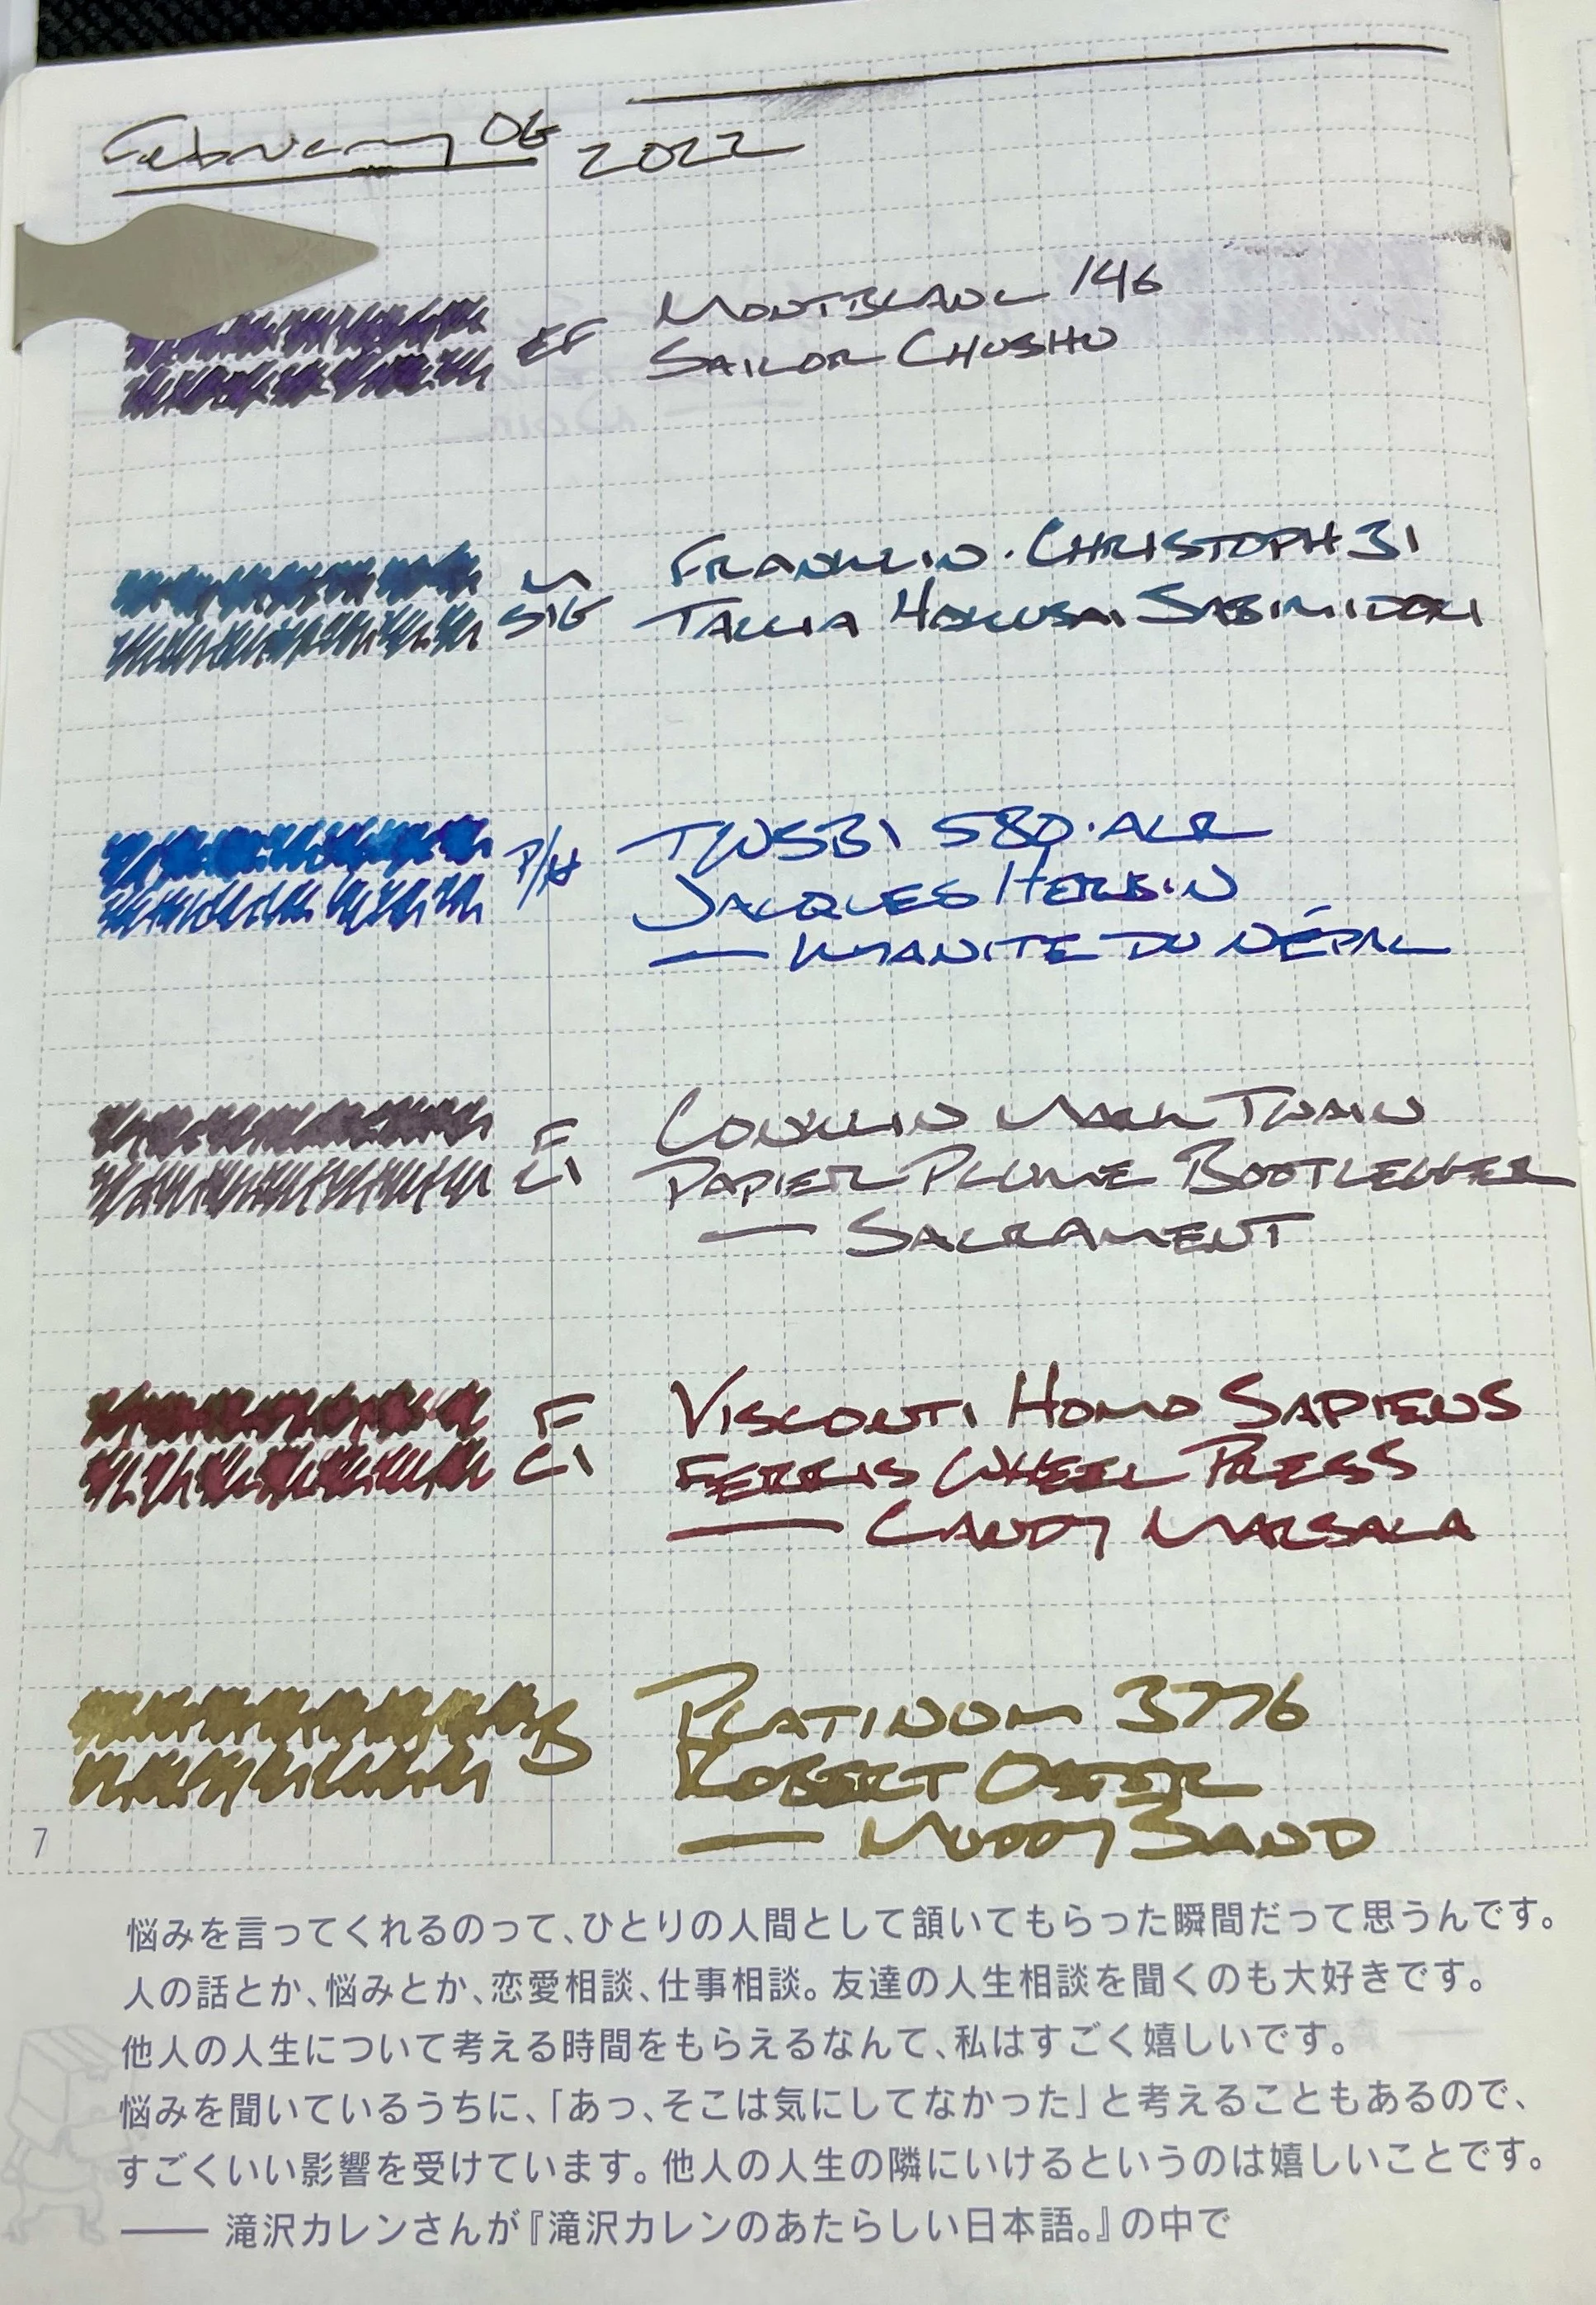 February 06
2022
EF
MONTBLANC 146
SAILOR CHUSHU
M
SIG
FRANKLIN·CHRISTOPH 31
TACCIA HOKUSAI SABIMIDORI
P/H
TWSBI 580·ALR
JACQUES HERBIN
— KYANITE DU NÉPAL
F
CI
CONKLIN MARK TWAIN
PAPIER PLUME BOOTLEGGER
— SACRAMENT
F
CI
VISCONTI HOMO SAPIENS
FERRIS WHEEL PRESS
— CANDY MARSALA
B
PLATINUM 3776
ROBERT OSTER
— MUDDY SAND
7
悩みを言ってくれるのって、ひとりの人間として頷いてもらった瞬間だって思うんです。
人の話とか、悩みとか、恋愛相談、仕事相談。友達の人生相談を聞くのも大好きです。
他人の人生について考える時間をもらえるなんて、私はすごく嬉しいです。
悩みを聞いているうちに、「あっ、そこは気にしてなかった」と考えることもあるので、
すごくいい影響を受けています。他人の人生の隣にいけるというのは嬉しいことです。
―― 滝沢カレンさんが『滝沢カレンのあたらしい日本語。』の中で